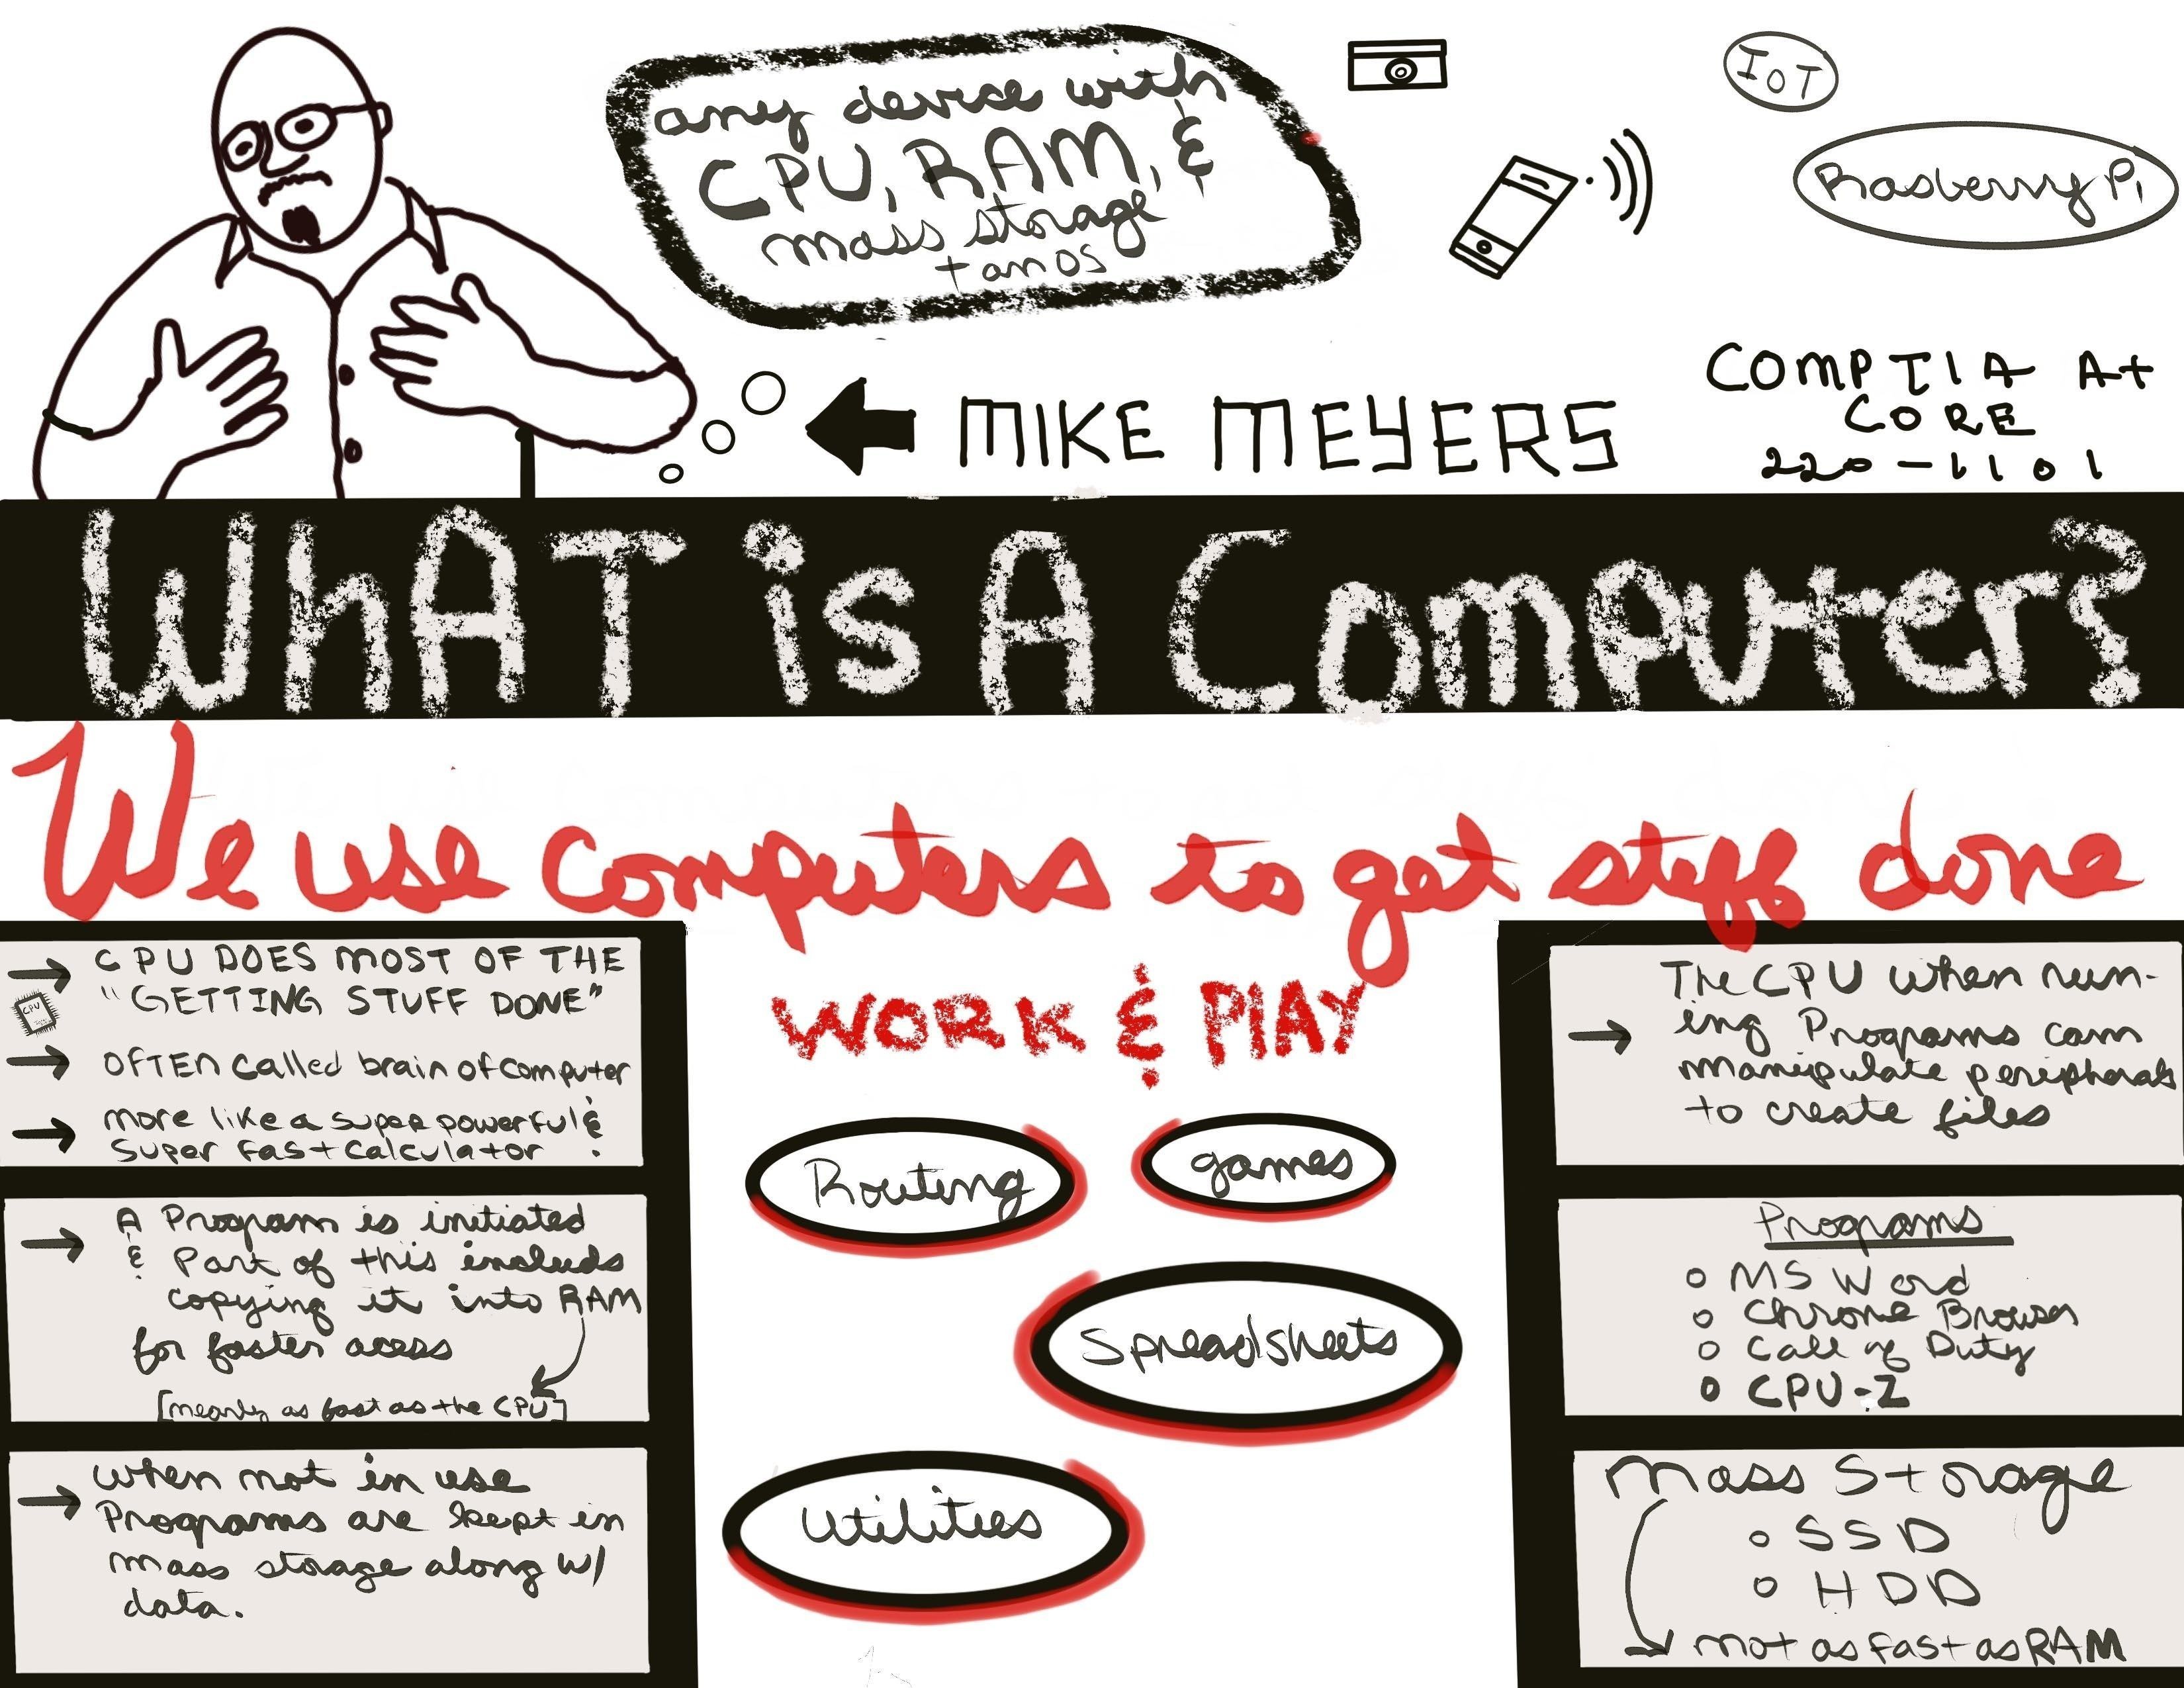 any device with
CPU, RAM, &
mass storage
+ an OS
IOT
Rasberry Pi
MIKE MEYERS
COMPTIA A+
CORE
220-1101
WhAT is A Computer?
We use computers to get stuff done
→ CPU DOES MOST OF THE
"GETTING STUFF DONE"
CPU
→ OFTEN called brain of computer
→ more like a super powerful &
super fast calculator.
→ A Program is initiated
& Part of this includs
copying it into RAM
for faster acess
[nearly as fast as the CPU]
→ when not in use
Programs are kept in
mass storage along w/
data.
WORK & PlAY
Routing
games
Spreadsheets
Utilities
The CPU when run-
→ ing Programs can
manipulate peripherals
to create files
Programs
○ MS Word
○ Chrome Browser
○ Call of Duty
○ CPU-Z
Mass Storage
○ SSD
○ HDD
not as fast as RAM